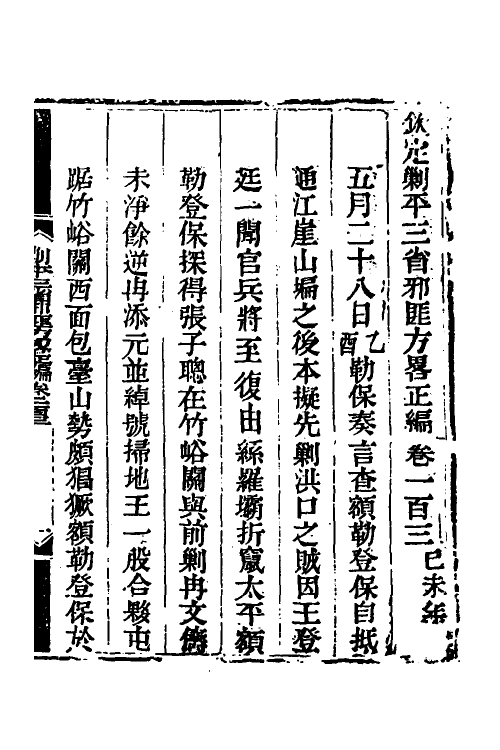 欽定剿平三省邪匪方畧正編卷一百三 己未年
五月二十八日乙酉勒保奏言查額勒登保自抵
通江崖山壩之後本擬先剿洪口之賊因王登
廷一聞官兵將至復由絲羅壩折竄太平額
勒登保探得張子聰在竹峪關與前剿冉文儔
未淨餘逆冉添元並綽號掃地王一股合夥屯
踞竹峪關西面包臺山勢頗猖獗額勒登保於